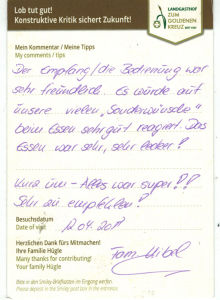 Lob tut gut!
Konstruktive Kritik sichert Zukunft!
LANDGASTHOF
ZUM
GOLDENEN
KREUZ
Mein Kommentar / Meine Tipps
My comments / tips
Der Empfang / die Bedienung war
sehr freundlich. Es wurde auf
unsere vielen „Sonderwünsche"
beim Essen sehr gut reagiert. Das
Essen war sehr, sehr lecker!
Kurz um - Alles war super!!
Sehr zu empfehlen!
Besuchsdatum
Date of visit
Herzlichen Dank fürs Mitmachen!
Ihre Familie Hügle
Many thanks for contributing!
Your family Hügle
Fam.
Bitte in den Smiley-Briefkasten im Eingang werfen.
Please deposit in the Smiley post box in the entrance.